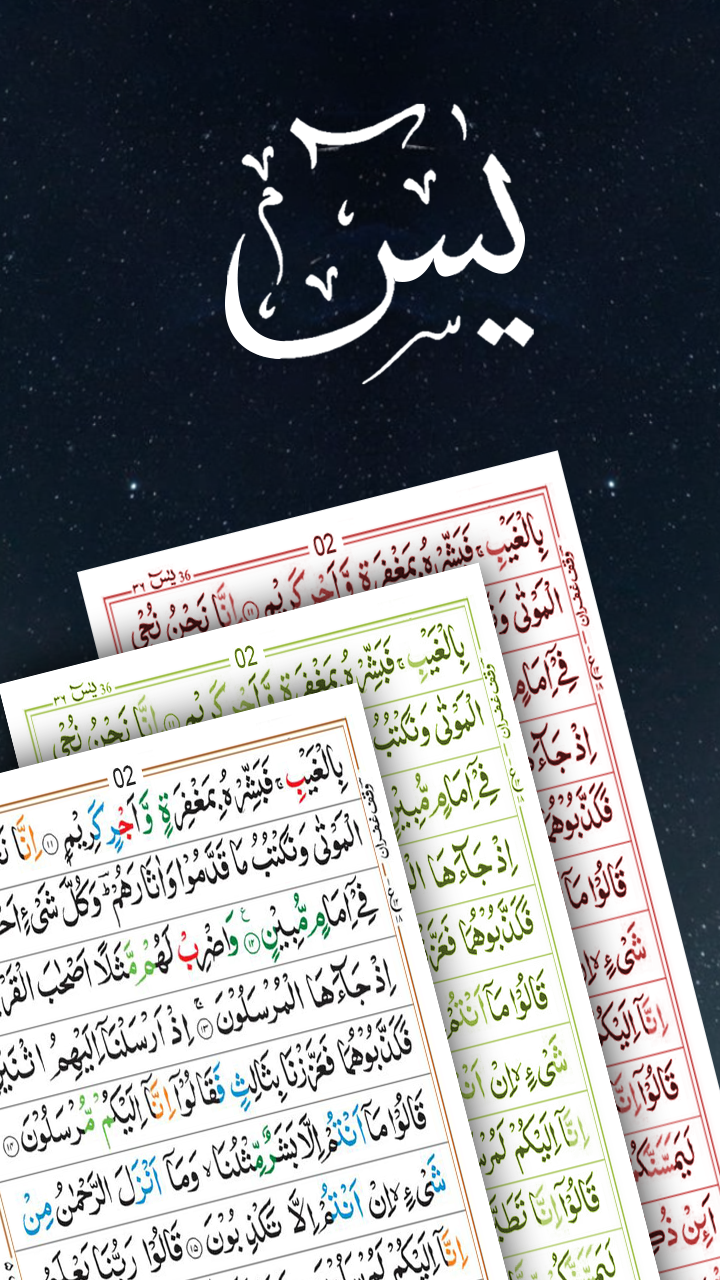 يٰسٓ
02
يٰسٓ 36 ٣٦
بِالْغَيْبِ ۚ فَبَشِّرْهُ بِمَغْفِرَةٍ وَّاَجْرٍ كَرِيْمٍ ۝۱۱ اِنَّا نَحْنُ نُحْيِ
الْمَوْتٰى وَ
فِيْٓ اِمَامٍ
اِذْ جَآءَ
فَكَذَّبُوْهُمَا
قَالُوْا مَاۤ
شَيْءٍ ۙ اِنْ
اِنَّاۤ اِلَيْكُمْ
قَالُوْۤا اِنَّا
لَيَمَسَّنَّكُمْ
اَئِنْ ذُكِّ
وقف غفران
02
يٰسٓ 36 ٣٦
بِالْغَيْبِ ۚ فَبَشِّرْهُ بِمَغْفِرَةٍ وَّاَجْرٍ كَرِيْمٍ ۝۱۱ اِنَّا نَحْنُ نُحْيِ
الْمَوْتٰى وَنَكْتُبُ
فِيْٓ اِمَامٍ مُّبِيْنٍ
اِذْ جَآءَهَا الْ
فَكَذَّبُوْهُمَا فَعَزَّ
قَالُوْا مَاۤ اَنْتُمْ
شَيْءٍ ۙ اِنْ اَنْ
اِنَّاۤ اِلَيْكُمْ لَمُرْسَ
قَالُوْۤا اِنَّا تَطَيَّ
لَيَمَسَّنَّكُمْ
وقف غفران
02
بِالْغَيْبِ ۚ فَبَشِّرْهُ بِمَغْفِرَةٍ وَّاَجْرٍ كَرِيْمٍ ۝۱۱ اِنَّا نَ
الْمَوْتٰى وَنَكْتُبُ مَا قَدَّمُوْا وَاٰثَارَهُمْ ؕ وَكُلَّ شَيْءٍ اَحْ
فِيْٓ اِمَامٍ مُّبِيْنٍ ۝۱۲ وَاضْرِبْ لَهُمْ مَّثَلًا اَصْحٰبَ الْقَرْ
اِذْ جَآءَهَا الْمُرْسَلُوْنَ ۝۱۳ اِذْ اَرْسَلْنَاۤ اِلَيْهِمُ اثْنَيْنِ
فَكَذَّبُوْهُمَا فَعَزَّزْنَا بِثَالِثٍ فَقَالُوْۤا اِنَّاۤ اِلَيْكُمْ مُّرْسَلُوْنَ ۝۱۴
قَالُوْا مَاۤ اَنْتُمْ اِلَّا بَشَرٌ مِّثْلُنَا ۙ وَمَاۤ اَنْزَلَ الرَّحْمٰنُ مِنْ
شَيْءٍ ۙ اِنْ اَنْتُمْ اِلَّا تَكْذِبُوْنَ ۝۱۵ قَالُوْا رَبُّنَا يَعْلَمُ
اِنَّاۤ اِلَيْكُمْ لَمُرْسَلُوْنَ
وقف غفران